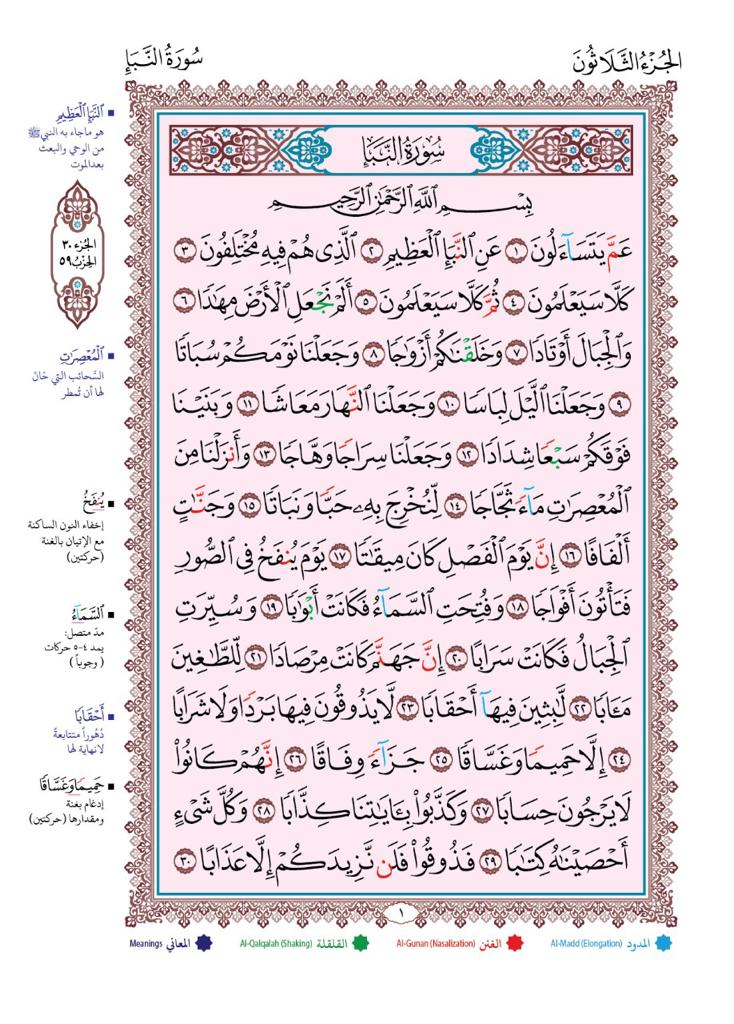 الجُزْءُ الثَّلَاثُونَ
سُورَةُ النَّبَإِ
سُورَةُ النَّبَإِ
بِسْمِ ٱللَّهِ ٱلرَّحْمَٰنِ ٱلرَّحِيمِ
عَمَّ يَتَسَآءَلُونَ ١ عَنِ ٱلنَّبَإِ ٱلْعَظِيمِ ٢ ٱلَّذِى هُمْ فِيهِ مُخْتَلِفُونَ ٣
كَلَّا سَيَعْلَمُونَ ٤ ثُمَّ كَلَّا سَيَعْلَمُونَ ٥ أَلَمْ نَجْعَلِ ٱلْأَرْضَ مِهَٰدًا ٦
وَٱلْجِبَالَ أَوْتَادًا ٧ وَخَلَقْنَٰكُمْ أَزْوَٰجًا ٨ وَجَعَلْنَا نَوْمَكُمْ سُبَاتًا
٩ وَجَعَلْنَا ٱلَّيْلَ لِبَاسًا ١٠ وَجَعَلْنَا ٱلنَّهَارَ مَعَاشًا ١١ وَبَنَيْنَا
فَوْقَكُمْ سَبْعًا شِدَادًا ١٢ وَجَعَلْنَا سِرَاجًا وَهَّاجًا ١٣ وَأَنزَلْنَا مِنَ
ٱلْمُعْصِرَٰتِ مَآءً ثَجَّاجًا ١٤ لِّنُخْرِجَ بِهِۦ حَبًّا وَنَبَاتًا ١٥ وَجَنَّٰتٍ
أَلْفَافًا ١٦ إِنَّ يَوْمَ ٱلْفَصْلِ كَانَ مِيقَٰتًا ١٧ يَوْمَ يُنفَخُ فِى ٱلصُّورِ
فَتَأْتُونَ أَفْوَاجًا ١٨ وَفُتِحَتِ ٱلسَّمَآءُ فَكَانَتْ أَبْوَٰبًا ١٩ وَسُيِّرَتِ
ٱلْجِبَالُ فَكَانَتْ سَرَابًا ٢٠ إِنَّ جَهَنَّمَ كَانَتْ مِرْصَادًا ٢١ لِّلطَّٰغِينَ
مَـَٔابًا ٢٢ لَّٰبِثِينَ فِيهَآ أَحْقَابًا ٢٣ لَّا يَذُوقُونَ فِيهَا بَرْدًا وَلَا شَرَابًا
٢٤ إِلَّا حَمِيمًا وَغَسَّاقًا ٢٥ جَزَآءً وِفَاقًا ٢٦ إِنَّهُمْ كَانُوا۟
لَا يَرْجُونَ حِسَابًا ٢٧ وَكَذَّبُوا۟ بِـَٔايَٰتِنَا كِذَّابًا ٢٨ وَكُلَّ شَىْءٍ
أَحْصَيْنَٰهُ كِتَٰبًا ٢٩ فَذُوقُوا۟ فَلَن نَّزِيدَكُمْ إِلَّا عَذَابًا ٣٠
١
ٱلنَّبَإِ ٱلْعَظِيمِ
هو ماجاء به النبي ﷺ
من الوحي والبعث
بعد الموت
الجزء ٣٠
الحزب ٥٩
ٱلْمُعْصِرَٰتِ
السَّحائب التي حَانَ
لها أن تُمطر
يُنفَخُ
إخفاء النون الساكنة
مع الإتيان بالغنة
(حركتين)
ٱلسَّمَآءُ
مدّ متصل:
يمد ٤-٥ حركات
(وجوباً)
أَحْقَابًا
دُهُوراً متتابعةً
لانهاية لها
حَمِيمًا وَغَسَّاقًا
إدغام بغنة
ومقدارها (حركتين)
المدود Al-Madd (Elongation)
الغنن Al-Gunan (Nasalization)
القلقلة Al-Qalqalah (Shaking)
المعاني Meanings